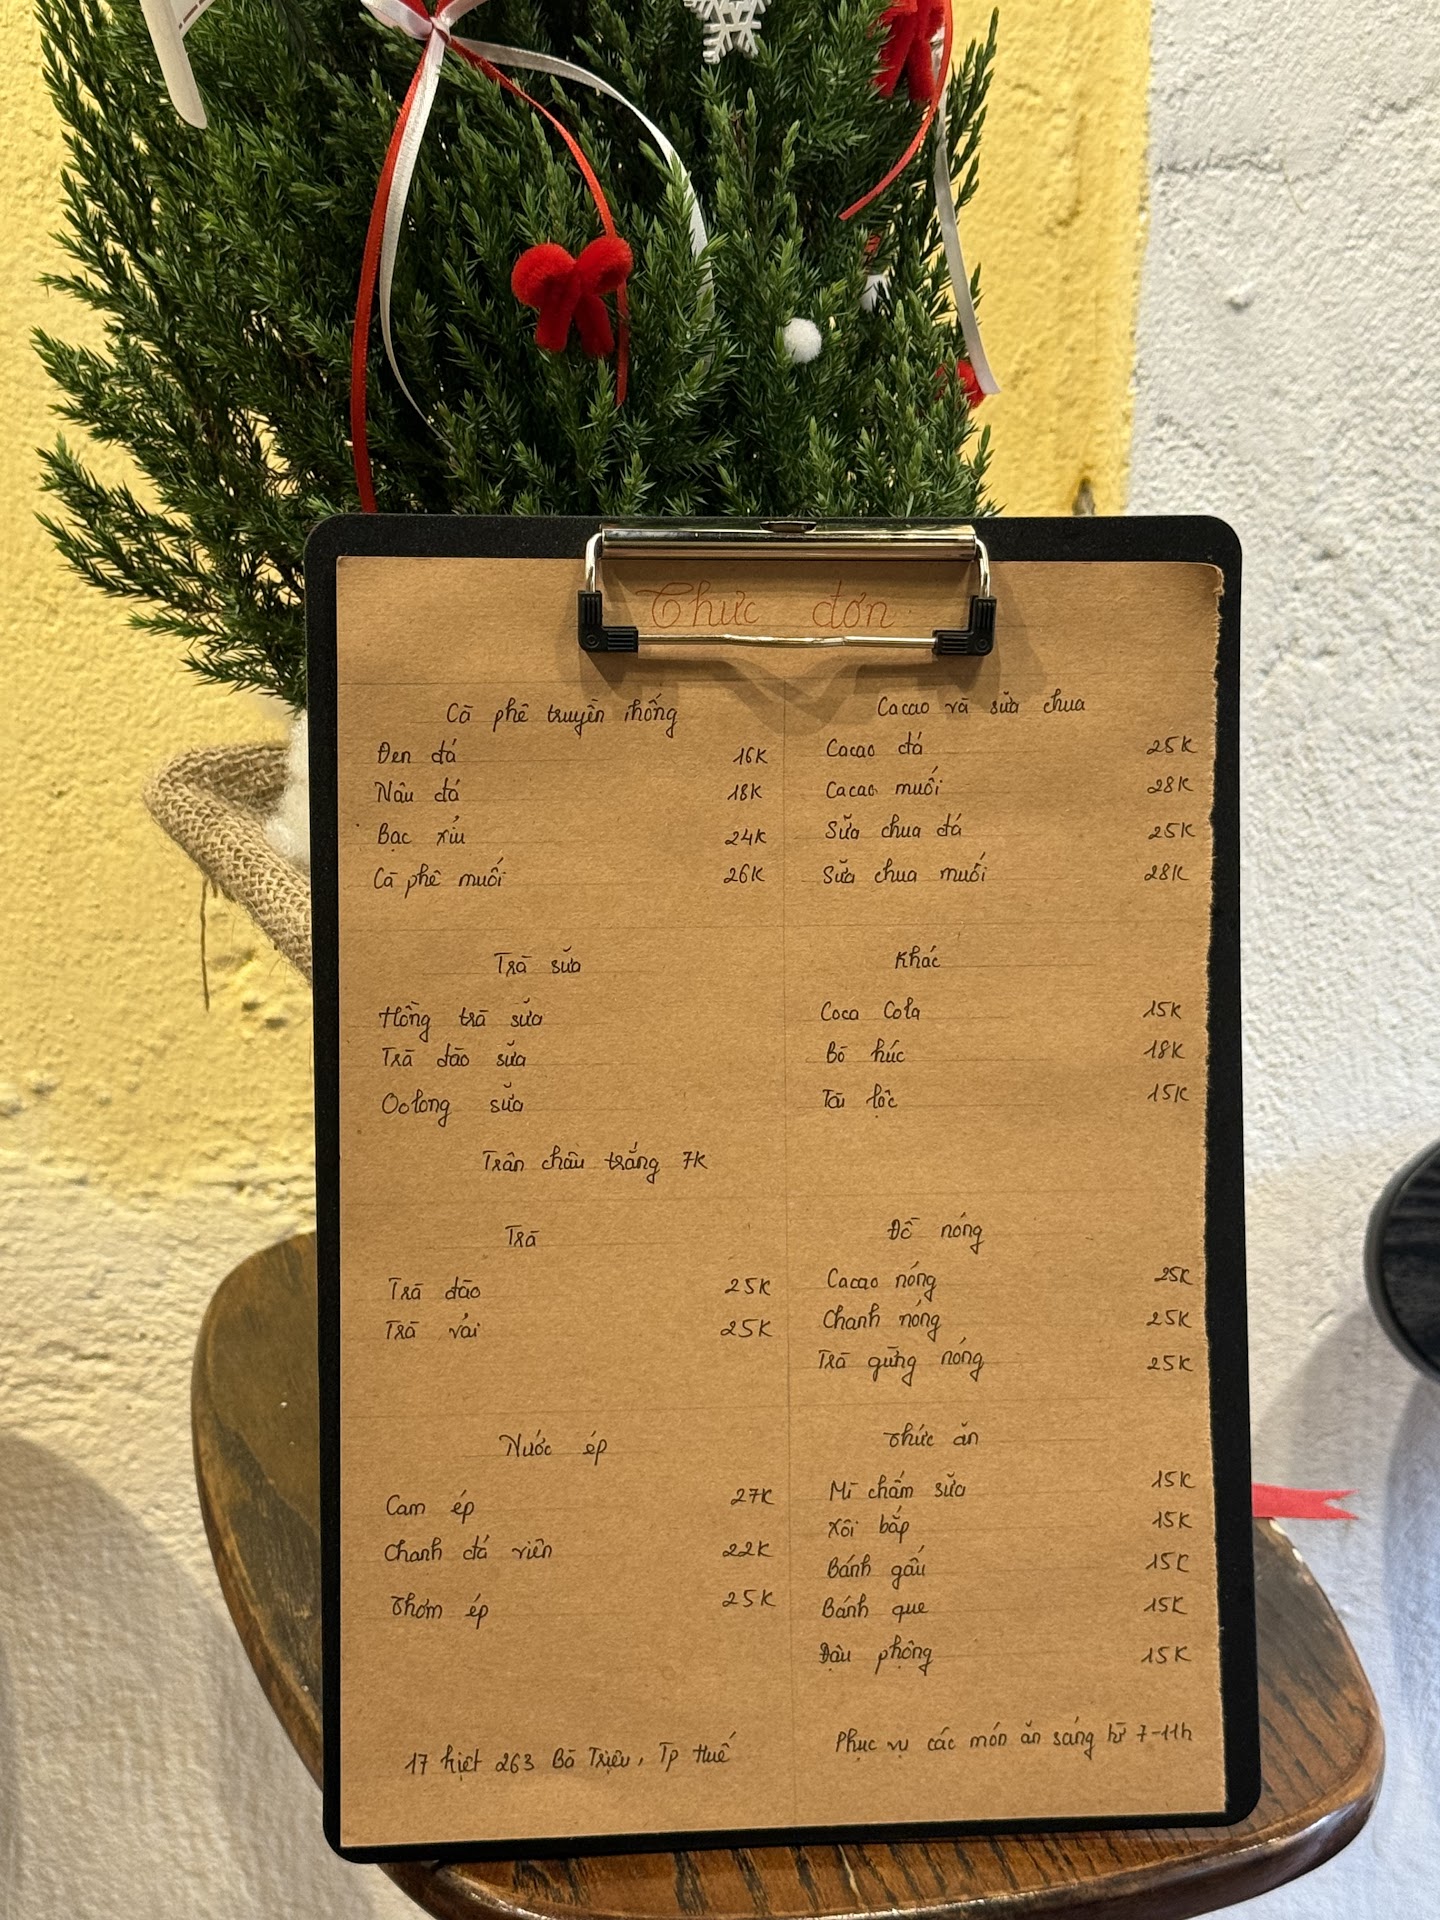 Thức đơn
Cà phê truyền thống
Đen đá 16K
Nâu đá 18K
Bạc xỉu 24K
Cà phê muối 26K
Trà sữa
Hồng trà sữa
Trà đào sữa
Oolong sữa
Trân châu trắng 7K
Trà
Trà đào 25K
Trà vải 25K
Nước ép
Cam ép 27K
Chanh đá viên 22K
Thơm ép 25K
17 kiệt 263 Bà Triệu, Tp Huế
Cacao và sữa chua
Cacao đá 25K
Cacao muối 28K
Sữa chua đá 25K
Sữa chua muối 28K
Khác
Coca Cola 15K
Bò húc 18K
Tài lộc 15K
Đồ nóng
Cacao nóng 25K
Chanh nóng 25K
Trà gừng nóng 25K
Thức ăn
Mì chấm sữa 15K
Xôi bắp 15K
Bánh gấu 15K
Bánh que 15K
Đậu phộng 15K
Phục vụ các món ăn sáng từ 7-11h